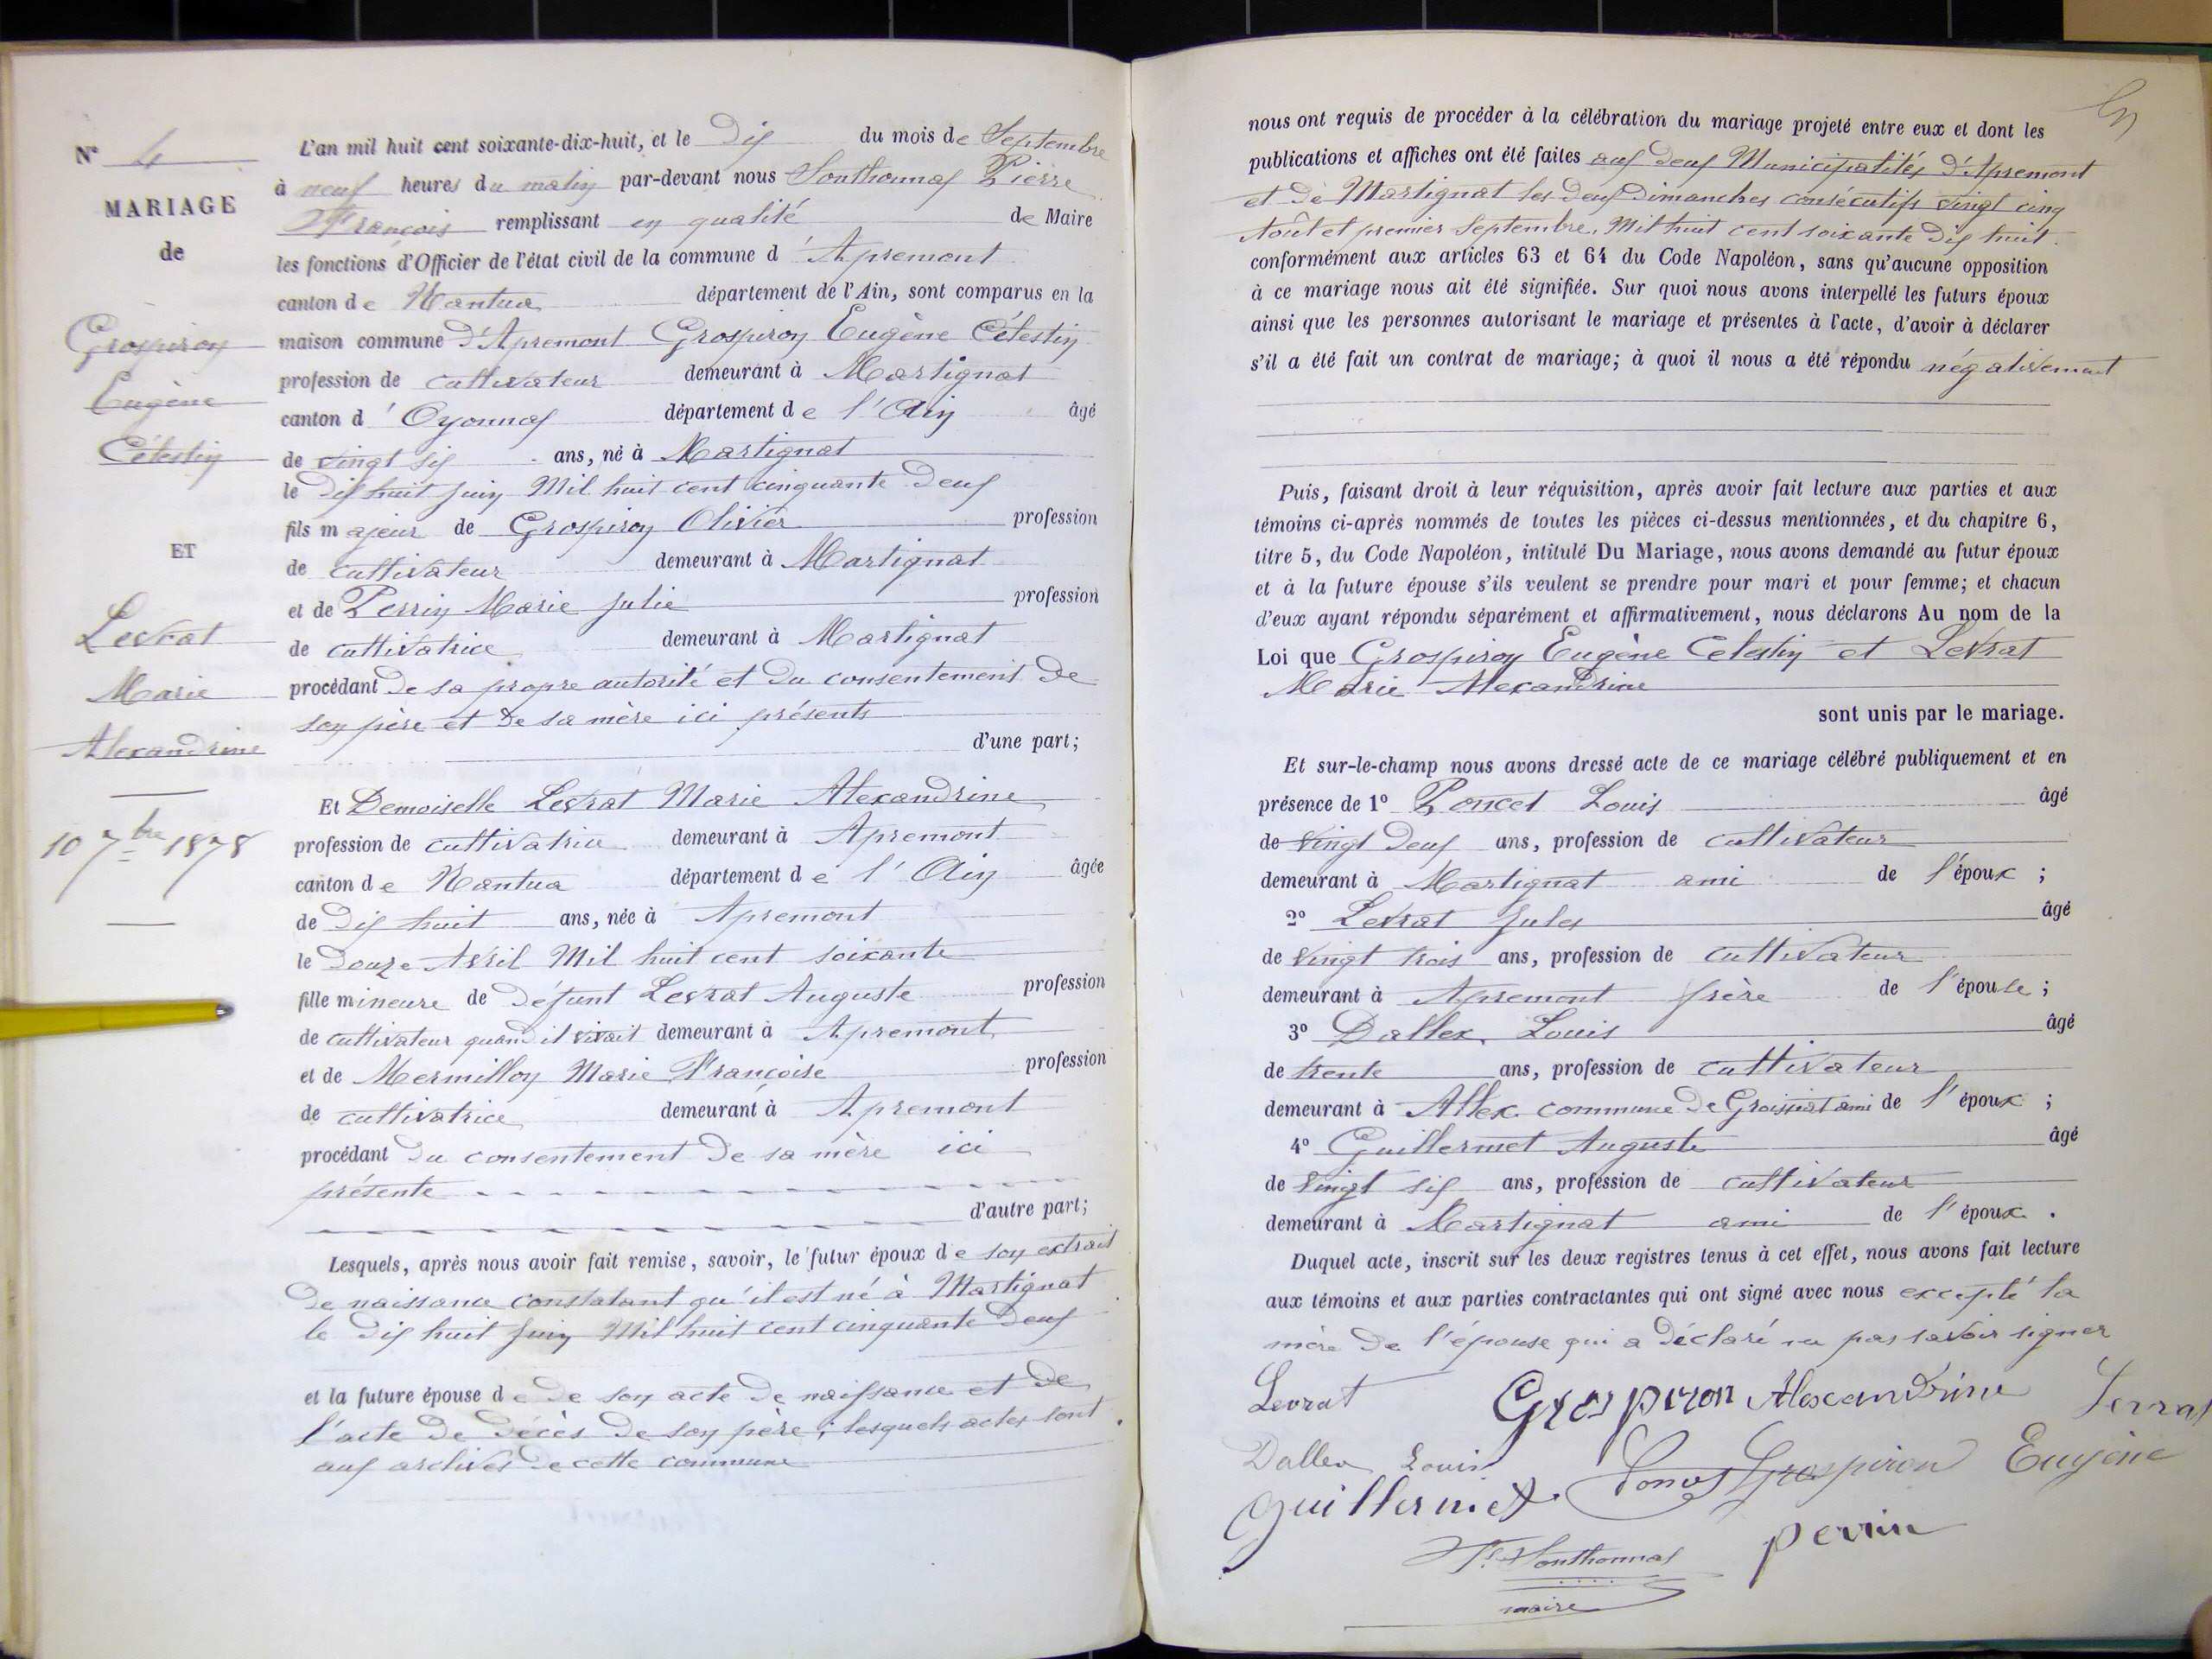 N° 4
MARIAGE
de
Grospiron
Eugène
Célestin
ET
Levrat
Marie
Alexandrine
10 7bre 1878
L'an mil huit cent soixante-dix-huit, et le Dix du mois de Septembre
à neuf heures du matin par-devant nous Southonnax Pierre
François remplissant en qualité de Maire
les fonctions d'Officier de l'état civil de la commune d'Apremont
canton de Nantua département de l'Ain, sont comparus en la
maison commune d'Apremont Grospiron Eugène Célestin
profession de cultivateur demeurant à Martignat
canton d'Oyonnax département de l'Ain âgé
de vingt six ans, né à Martignat
le dix huit Juin Mil huit cent cinquante Deux
fils majeur de Grospiron Olivier profession
de cultivateur demeurant à Martignat
et de Perrin Marie Julie profession
de cultivatrice demeurant à Martignat
procédant de sa propre autorité et du consentement de
son père et de sa mère ici présents
d'une part;
Et Demoiselle Levrat Marie Alexandrine
profession de cultivatrice demeurant à Apremont
canton de Nantua département de l'Ain âgée
de dix huit ans, née à Apremont
le douze Avril Mil huit cent soixante
fille mineure de défunt Levrat Auguste profession
de cultivateur quand il vivait demeurant à Apremont
et de Mermillon Marie Françoise profession
de cultivatrice demeurant à Apremont
procédant du consentement de sa mère ici
présente
d'autre part;
Lesquels, après nous avoir fait remise, savoir, le futur époux de son extrait
de naissance constatant qu'il est né à Martignat
le dix huit Juin Mil huit cent cinquante Deux
et la future épouse de de son acte de naissance et de
l'acte de décès de son père; lesquels actes sont
aux archives de cette commune
nous ont requis de procéder à la célébration du mariage projeté entre eux et dont les
publications et affiches ont été faites aux deux Municipalités d'Apremont
et de Martignat les deux Dimanches consécutifs vingt cinq
Août et premier Septembre, Mil huit cent soixante dix huit
conformément aux articles 63 et 64 du Code Napoléon, sans qu'aucune opposition
à ce mariage nous ait été signifiée. Sur quoi nous avons interpellé les futurs époux
ainsi que les personnes autorisant le mariage et présentes à l'acte, d'avoir à déclarer
s'il a été fait un contrat de mariage; à quoi il nous a été répondu négativement
Puis, faisant droit à leur réquisition, après avoir fait lecture aux parties et aux
témoins ci-après nommés de toutes les pièces ci-dessus mentionnées, et du chapitre 6,
titre 5, du Code Napoléon, intitulé Du Mariage, nous avons demandé au futur époux
et à la future épouse s'ils veulent se prendre pour mari et pour femme; et chacun
d'eux ayant répondu séparément et affirmativement, nous déclarons Au nom de la
Loi que Grospiron Eugène Celestin et Levrat
Marie Alexandrine
sont unis par le mariage.
Et sur-le-champ nous avons dressé acte de ce mariage célébré publiquement et en
présence de 1° Poncet Louis âgé
de vingt deux ans, profession de cultivateur
demeurant à Martignat ami de l'époux ;
2° Levrat Jules âgé
de vingt trois ans, profession de cultivateur
demeurant à Apremont frère de l'épouse ;
3° Dallex Louis âgé
de trente ans, profession de cultivateur
demeurant à Allex commune de Groissiat ami de l'époux ;
4° Guillermet Auguste âgé
de vingt six ans, profession de cultivateur
demeurant à Martignat ami de l'époux .
Duquel acte, inscrit sur les deux registres tenus à cet effet, nous avons fait lecture
aux témoins et aux parties contractantes qui ont signé avec nous excepté la
mère de l'épouse qui a déclaré ne pas savoir signer
Levrat Grospiron Alexandrine Levrat
Dallex Louis Grospiron Eugène
Guillermet
perrin
Southonnax
maire